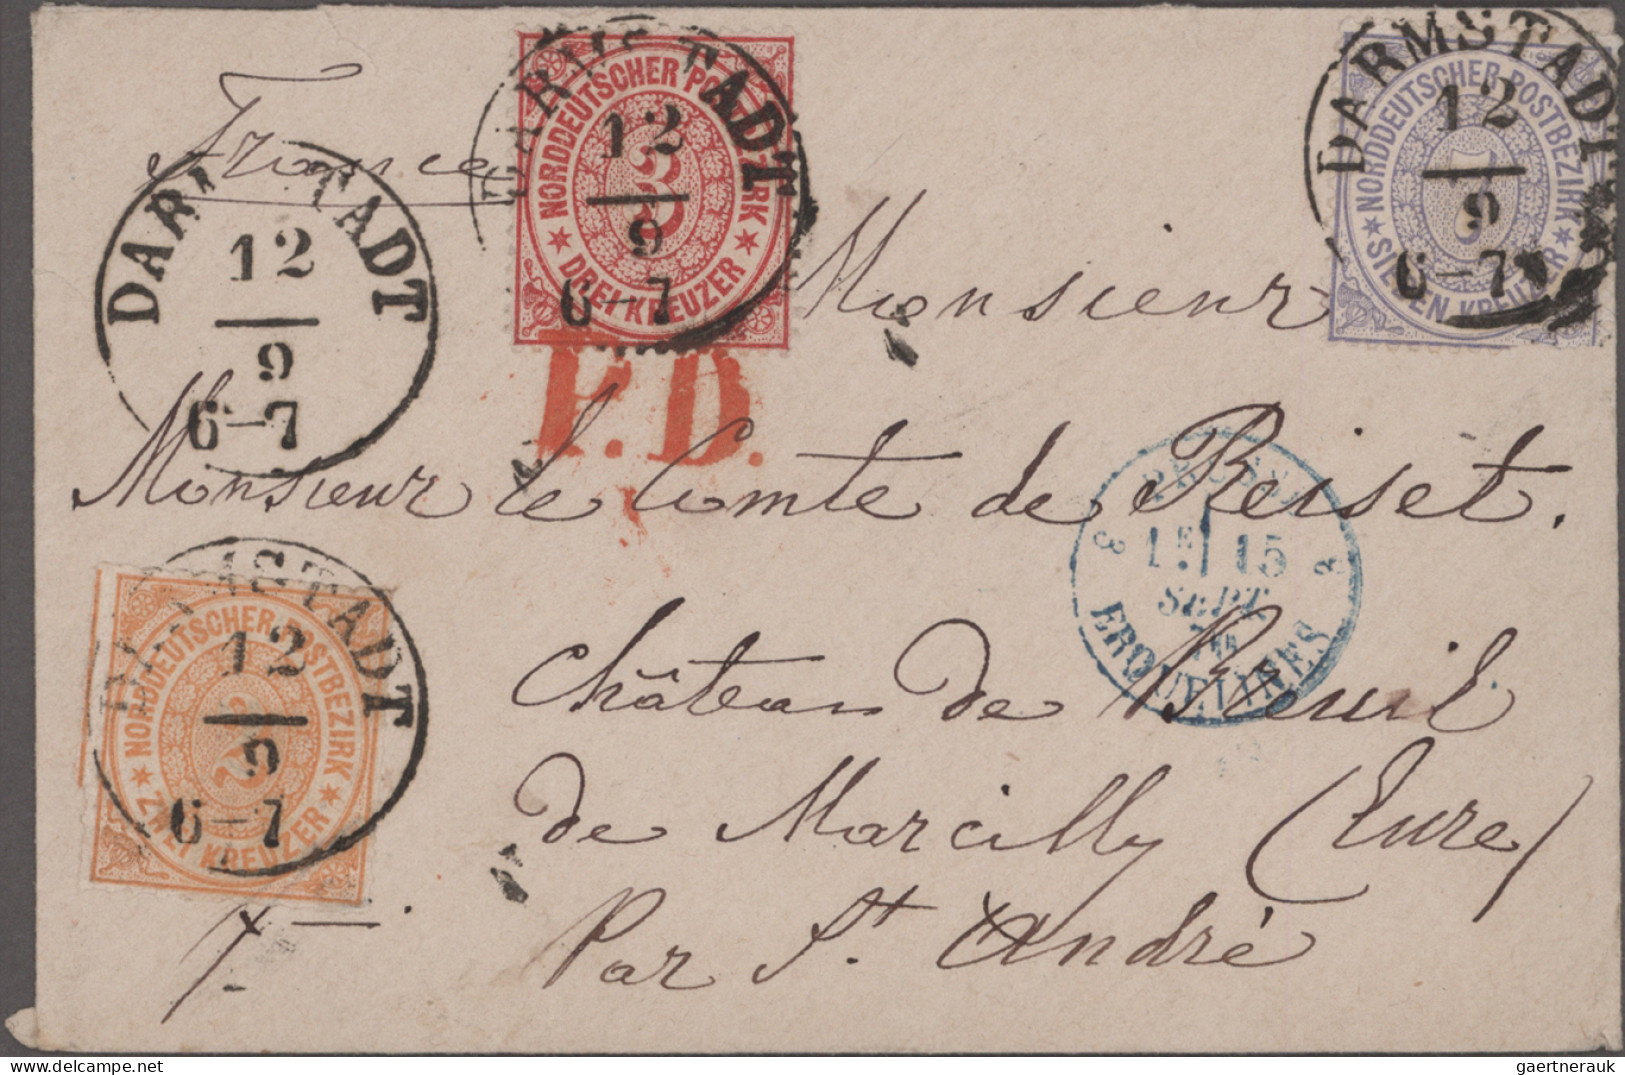 France
DARMSTADT
12
9
6-7
NORDDEUTSCHER POSTBEZIRK
3
DREI KREUZER
DARMSTADT
12
9
6-7
NORDDEUTSCHER POSTBEZIRK
7
SIEBEN KREUZER
DARMSTADT
12
9
6-7
P.D.
Monsieur
Monsieur le Comte de Reiset.
3
1E 15
SEPT
3
ERQUELINES
château de Breuil
de Marcilly (Eure)
Par St. André
DARMSTADT
12
9
6-7
NORDDEUTSCHER POSTBEZIRK
2
ZWEI KREUZER
DELCAMPE.NET
gaertnerauk